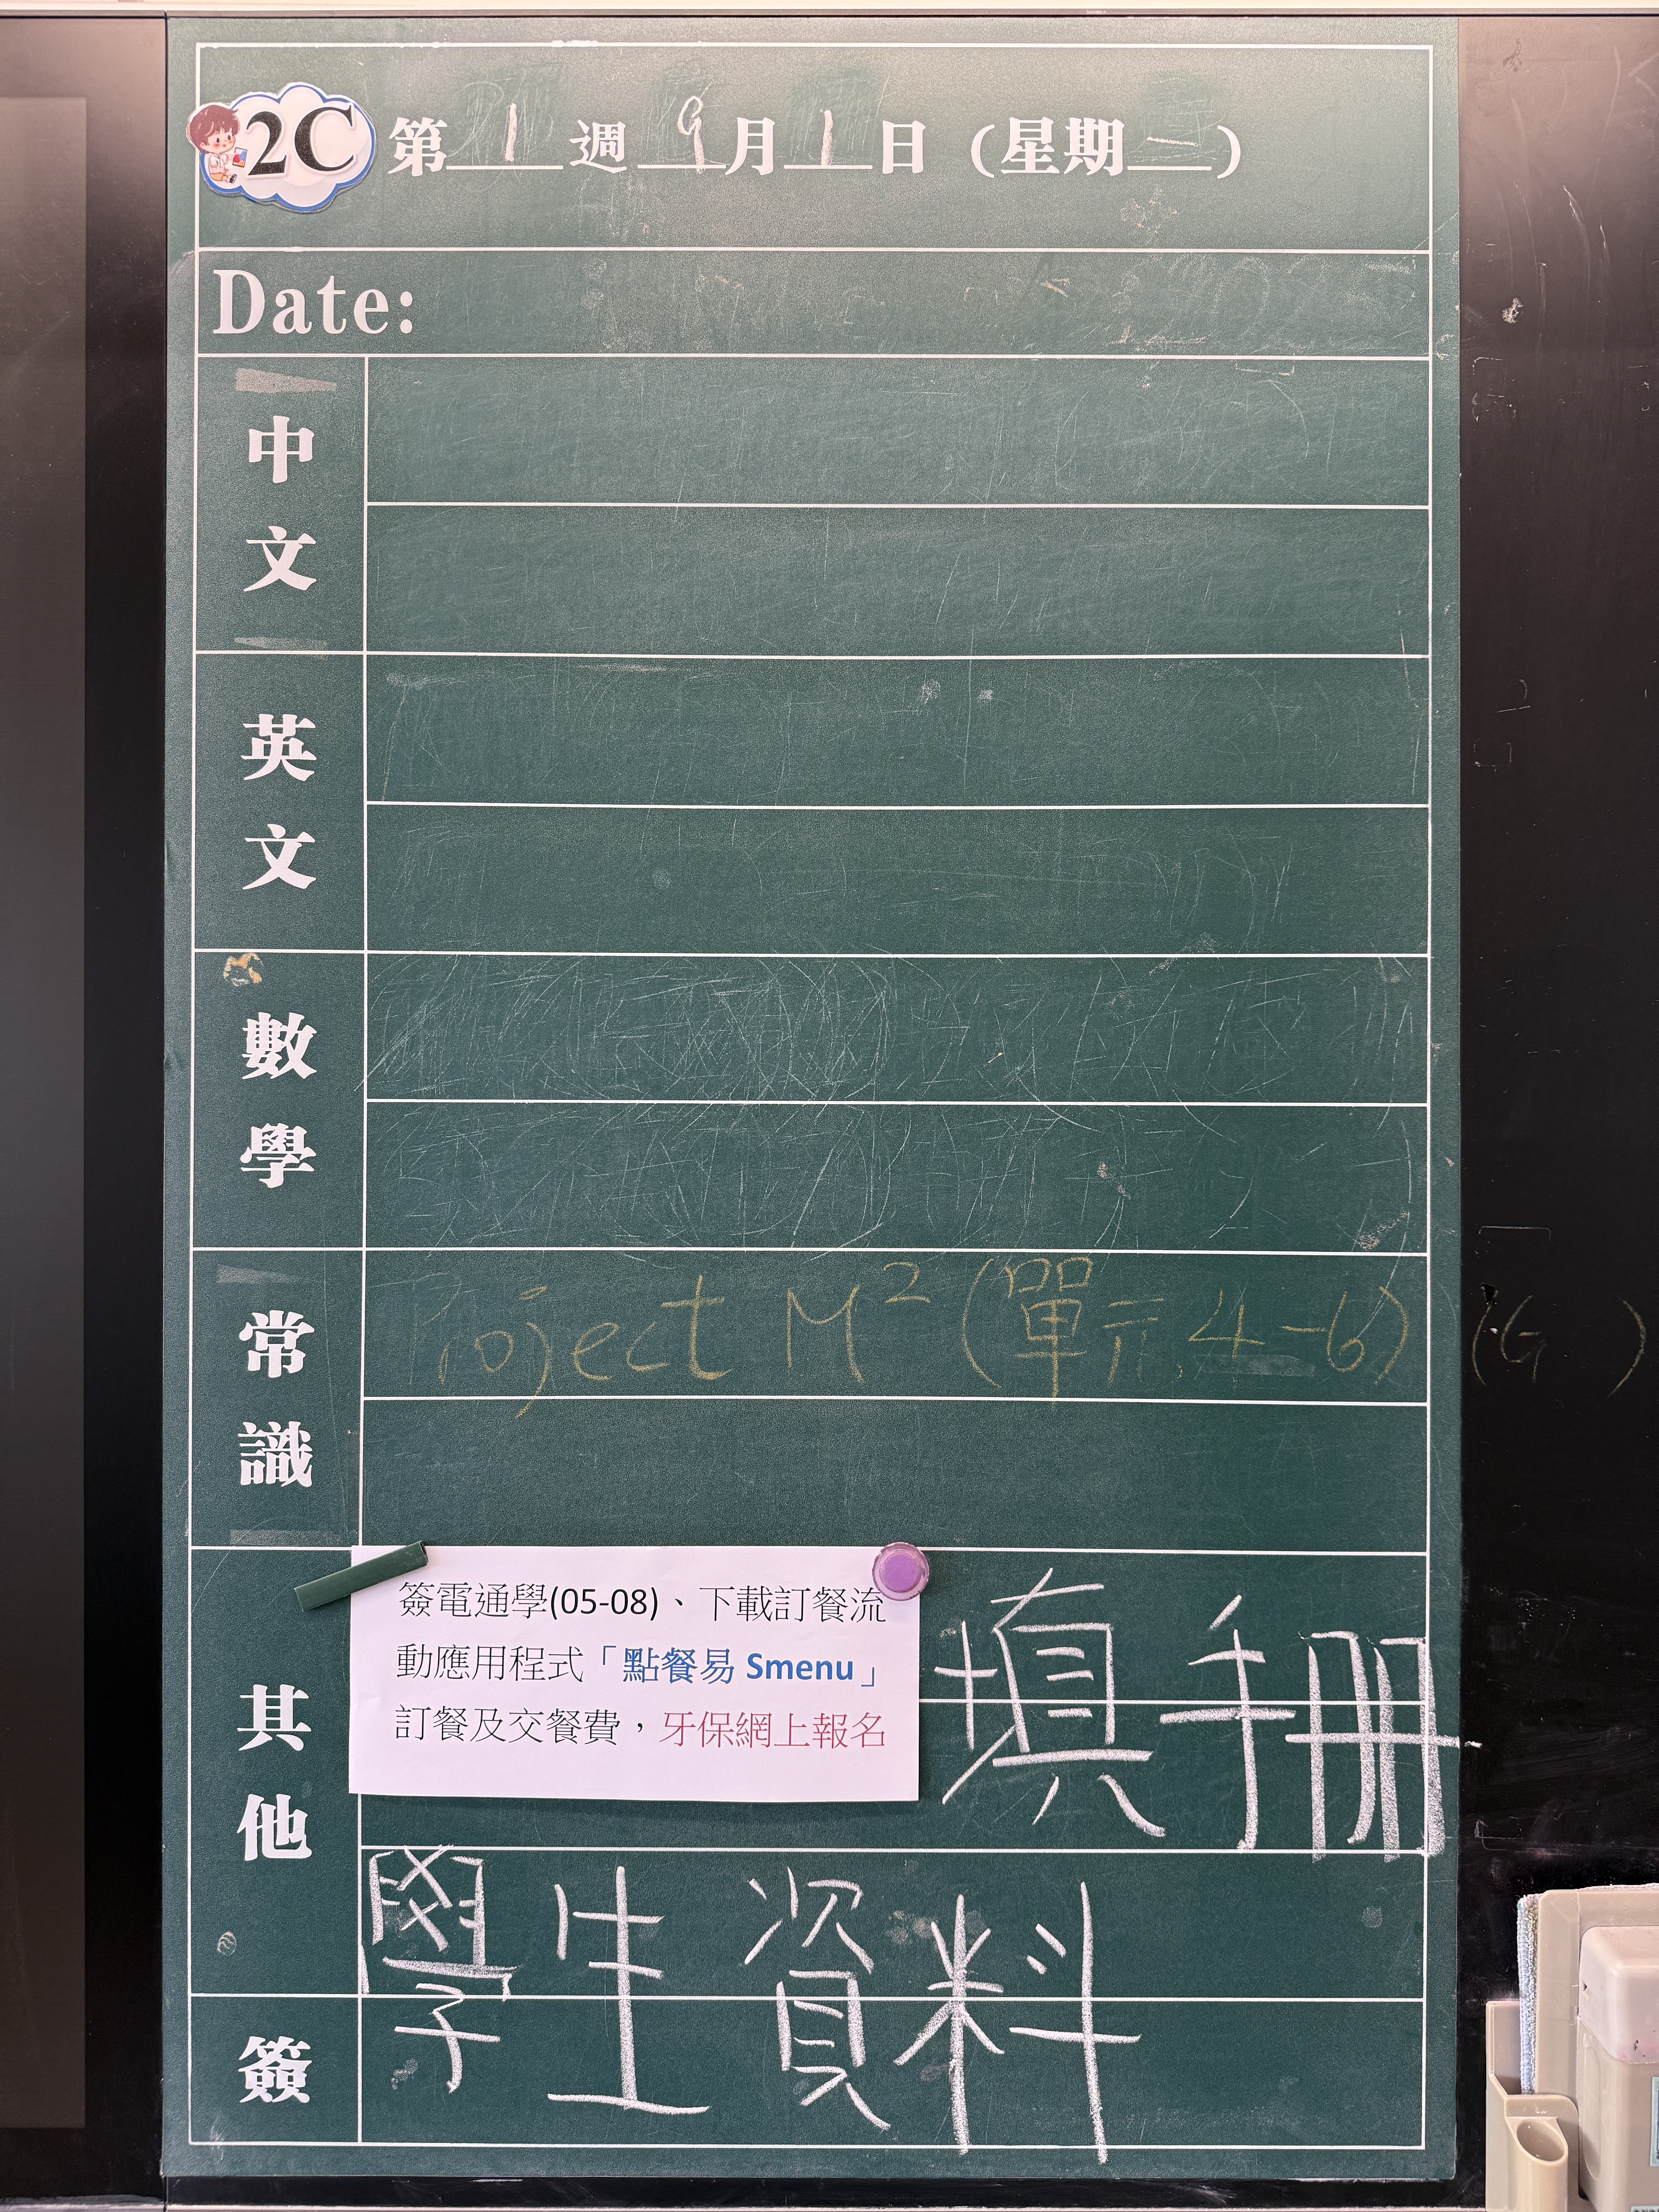 2C 第1週9月1日(星期一)
Date:
中文
英文
數學
常識
Project M² (單元4-6) (G )
其他
簽電通學(05-08)、下載訂餐流
動應用程式「點餐易 Smenu」
訂餐及交餐費，牙保網上報名
填手冊
學生資料
簽